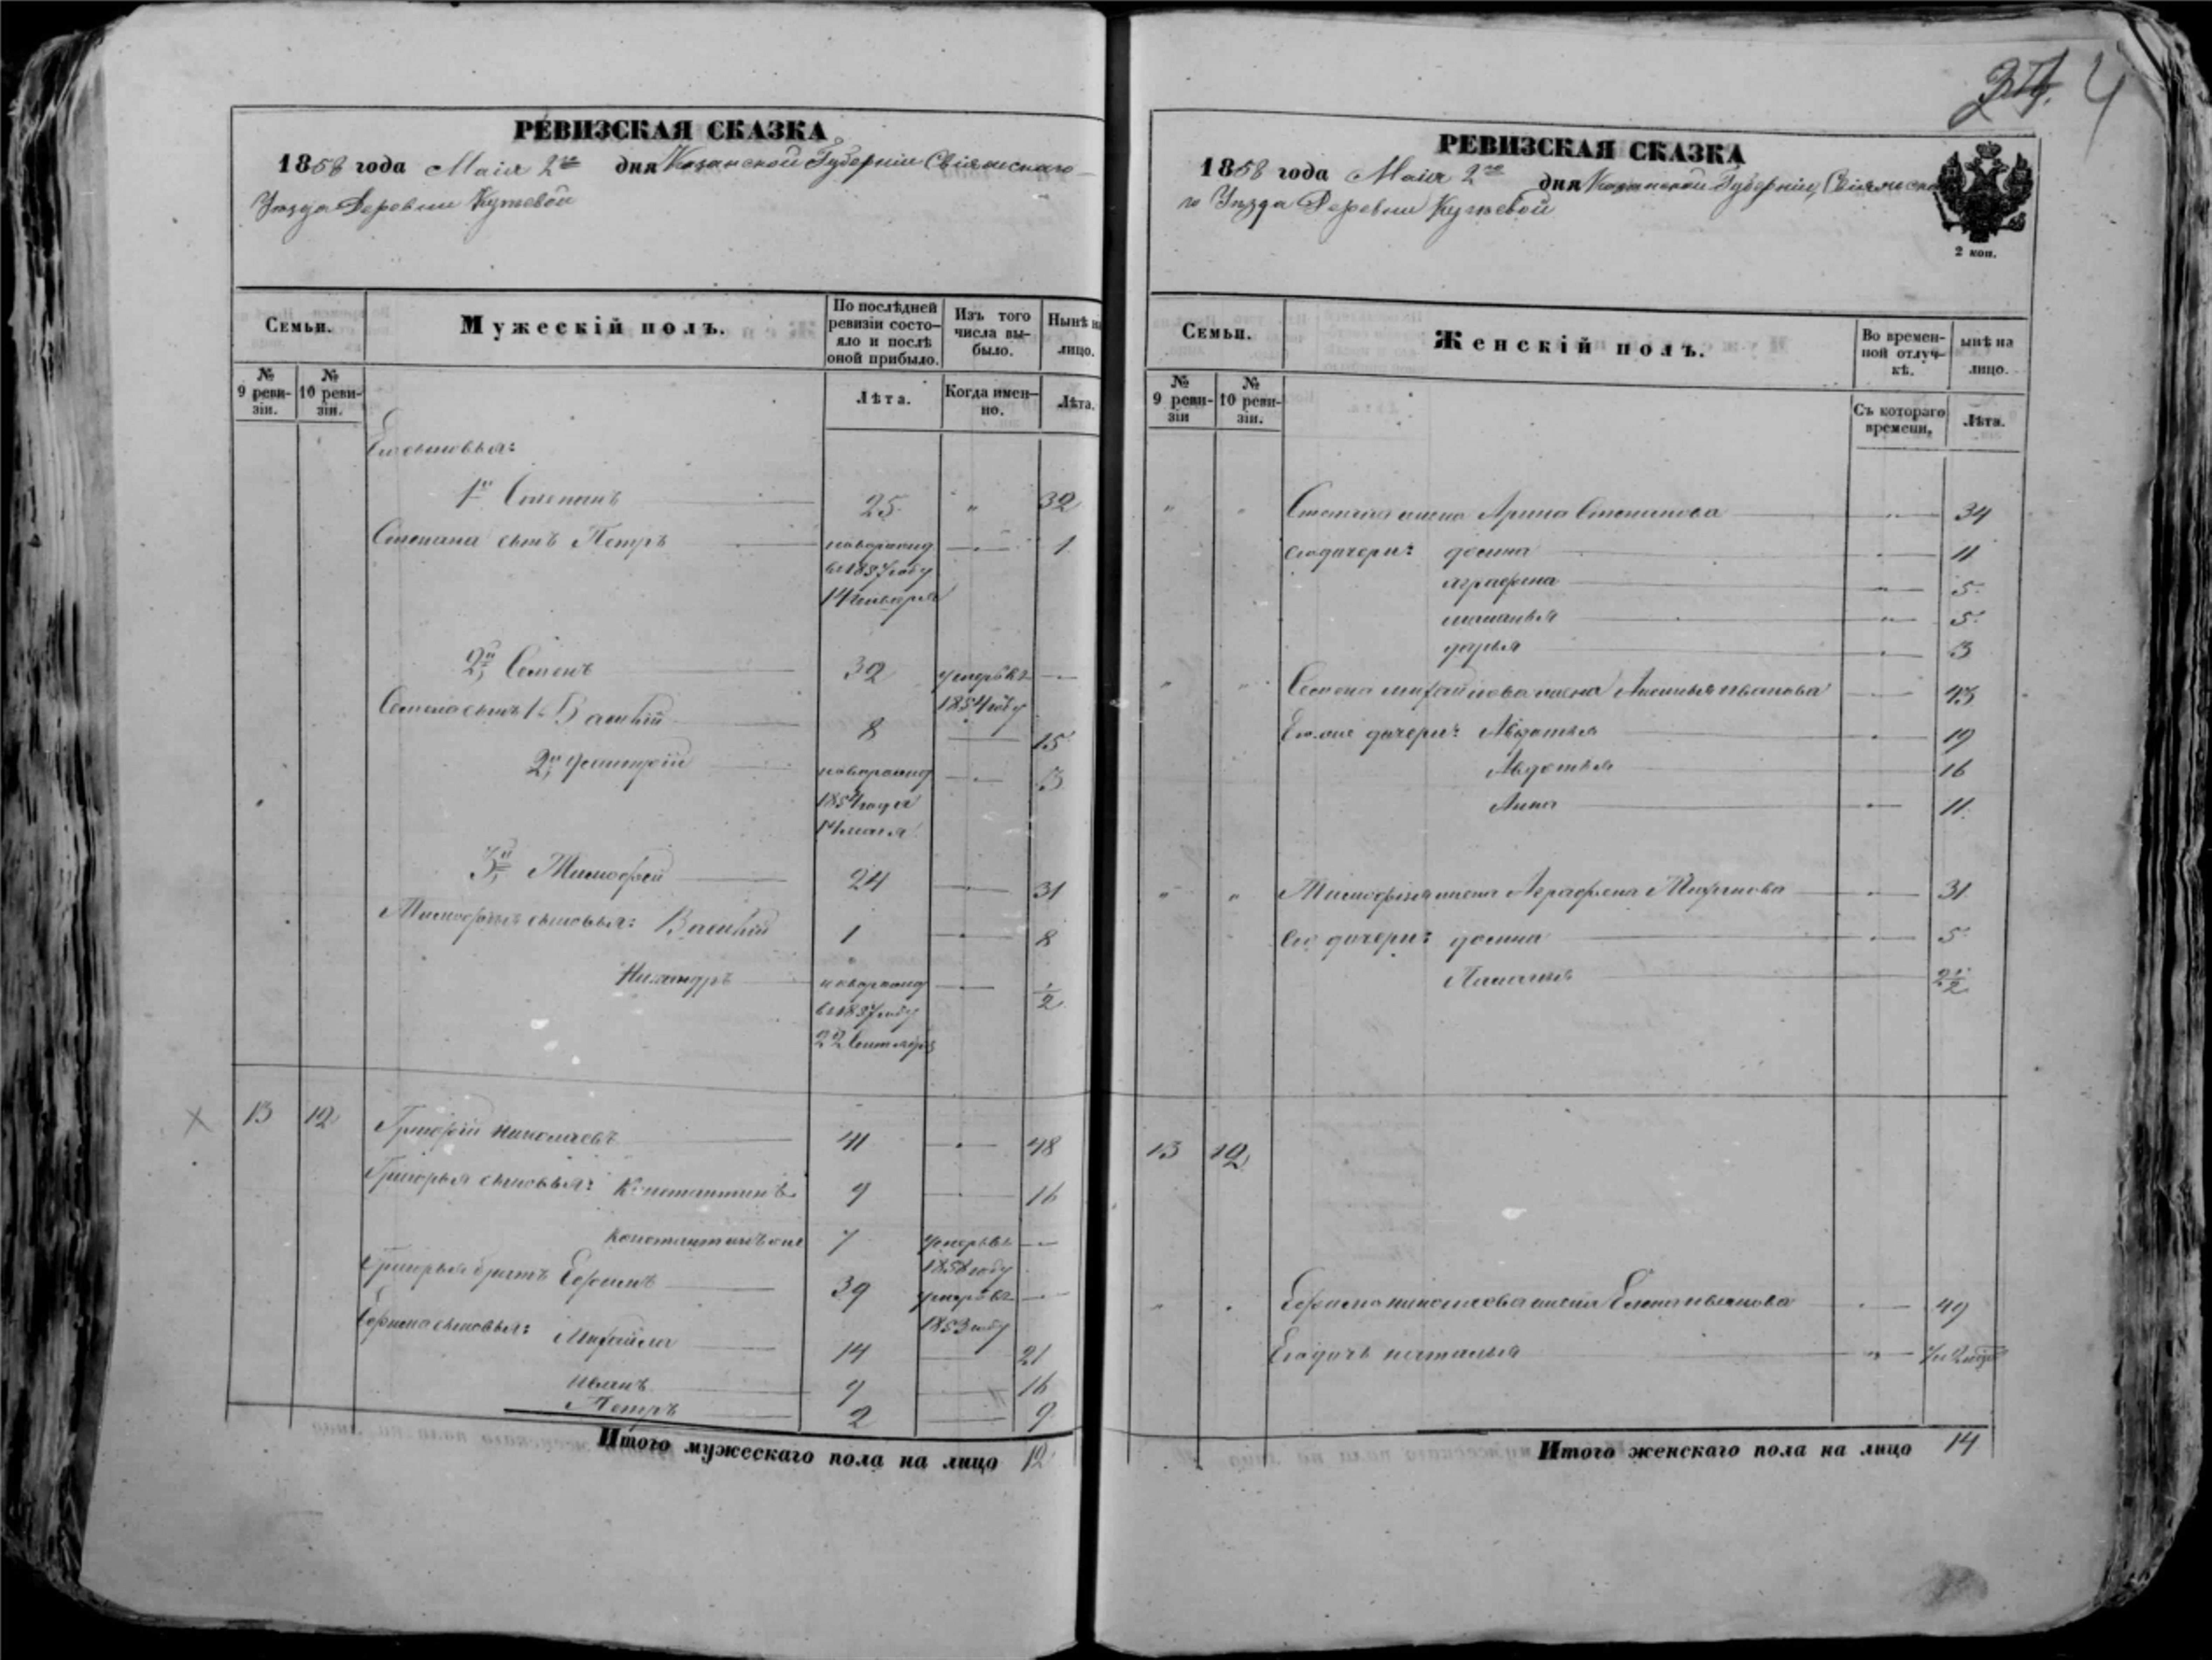 РЕВИЗСКАЯ СКАЗКА
1858 года Маія 2го дня Казанской Губерніи Свіяжскаго
Уѣзда Деревни
Семьи.
Мужескій полъ.
По послѣдней ревизіи состояло и послѣ оной прибыло.
Изъ того числа выбыло.
Нынѣ на лицо.
№ 9 ревизіи.
№ 10 ревизіи.
Лѣта.
Когда именно.
Лѣта.
Его сыновья:
1й Степанъ 25 " 32
Степана сынъ Петръ новорожд — 1
въ 1857 году
14 января
2й Семенъ 32 умеръ въ —
1854 году
Семена сынъ 1й Василій 8 — 15
2й Дмитрій новорожд — 3
1854 года
14 мая
3й Тимофей 24 — 31
Тимофея сыновья: Василій 1 — 8
Никандръ новорожд — 1/2
въ 1857 году
22 Сентября
13 12 Григорій Николаевъ 41 — 48
Григорья сыновья: Константинъ 9 — 16
Константинъ же 7 умеръ въ —
1858 году
Григорья братъ Ефимъ 39 умеръ въ —
1853 году
Ефима сыновья: Михайла 14 — 21
Иванъ 9 — 16
Петръ 2 — 9
Итого мужескаго пола на лицо 12
4
РЕВИЗСКАЯ СКАЗКА
1858 года Маія 2го дня Казанской Губерніи, Свіяжска
го Уѣзда Деревни
2 коп.
Семьи.
Женскій полъ.
Во временной отлучкѣ.
ынѣ на лицо.
№ 9 ревизіи
№ 10 ревизіи.
Съ котораго времени.
Лѣта.
" " Степана жена Арина Степанова — 34
его дочери: — 11
аграфена — 5
— 5
дарья — 3
" " Семена Михайлова жена Ивanова — 43
Его же дочери: Авдотья — 19
Авдотья 16
Анна — 11
" " Тимофея жена Аграфена — 31
его дочери: — 5
2 1/2
13 12
" " Ефима николаева жена Елена иванова — 49
Его дочь наталья "
Итого женскаго пола на лицо 14